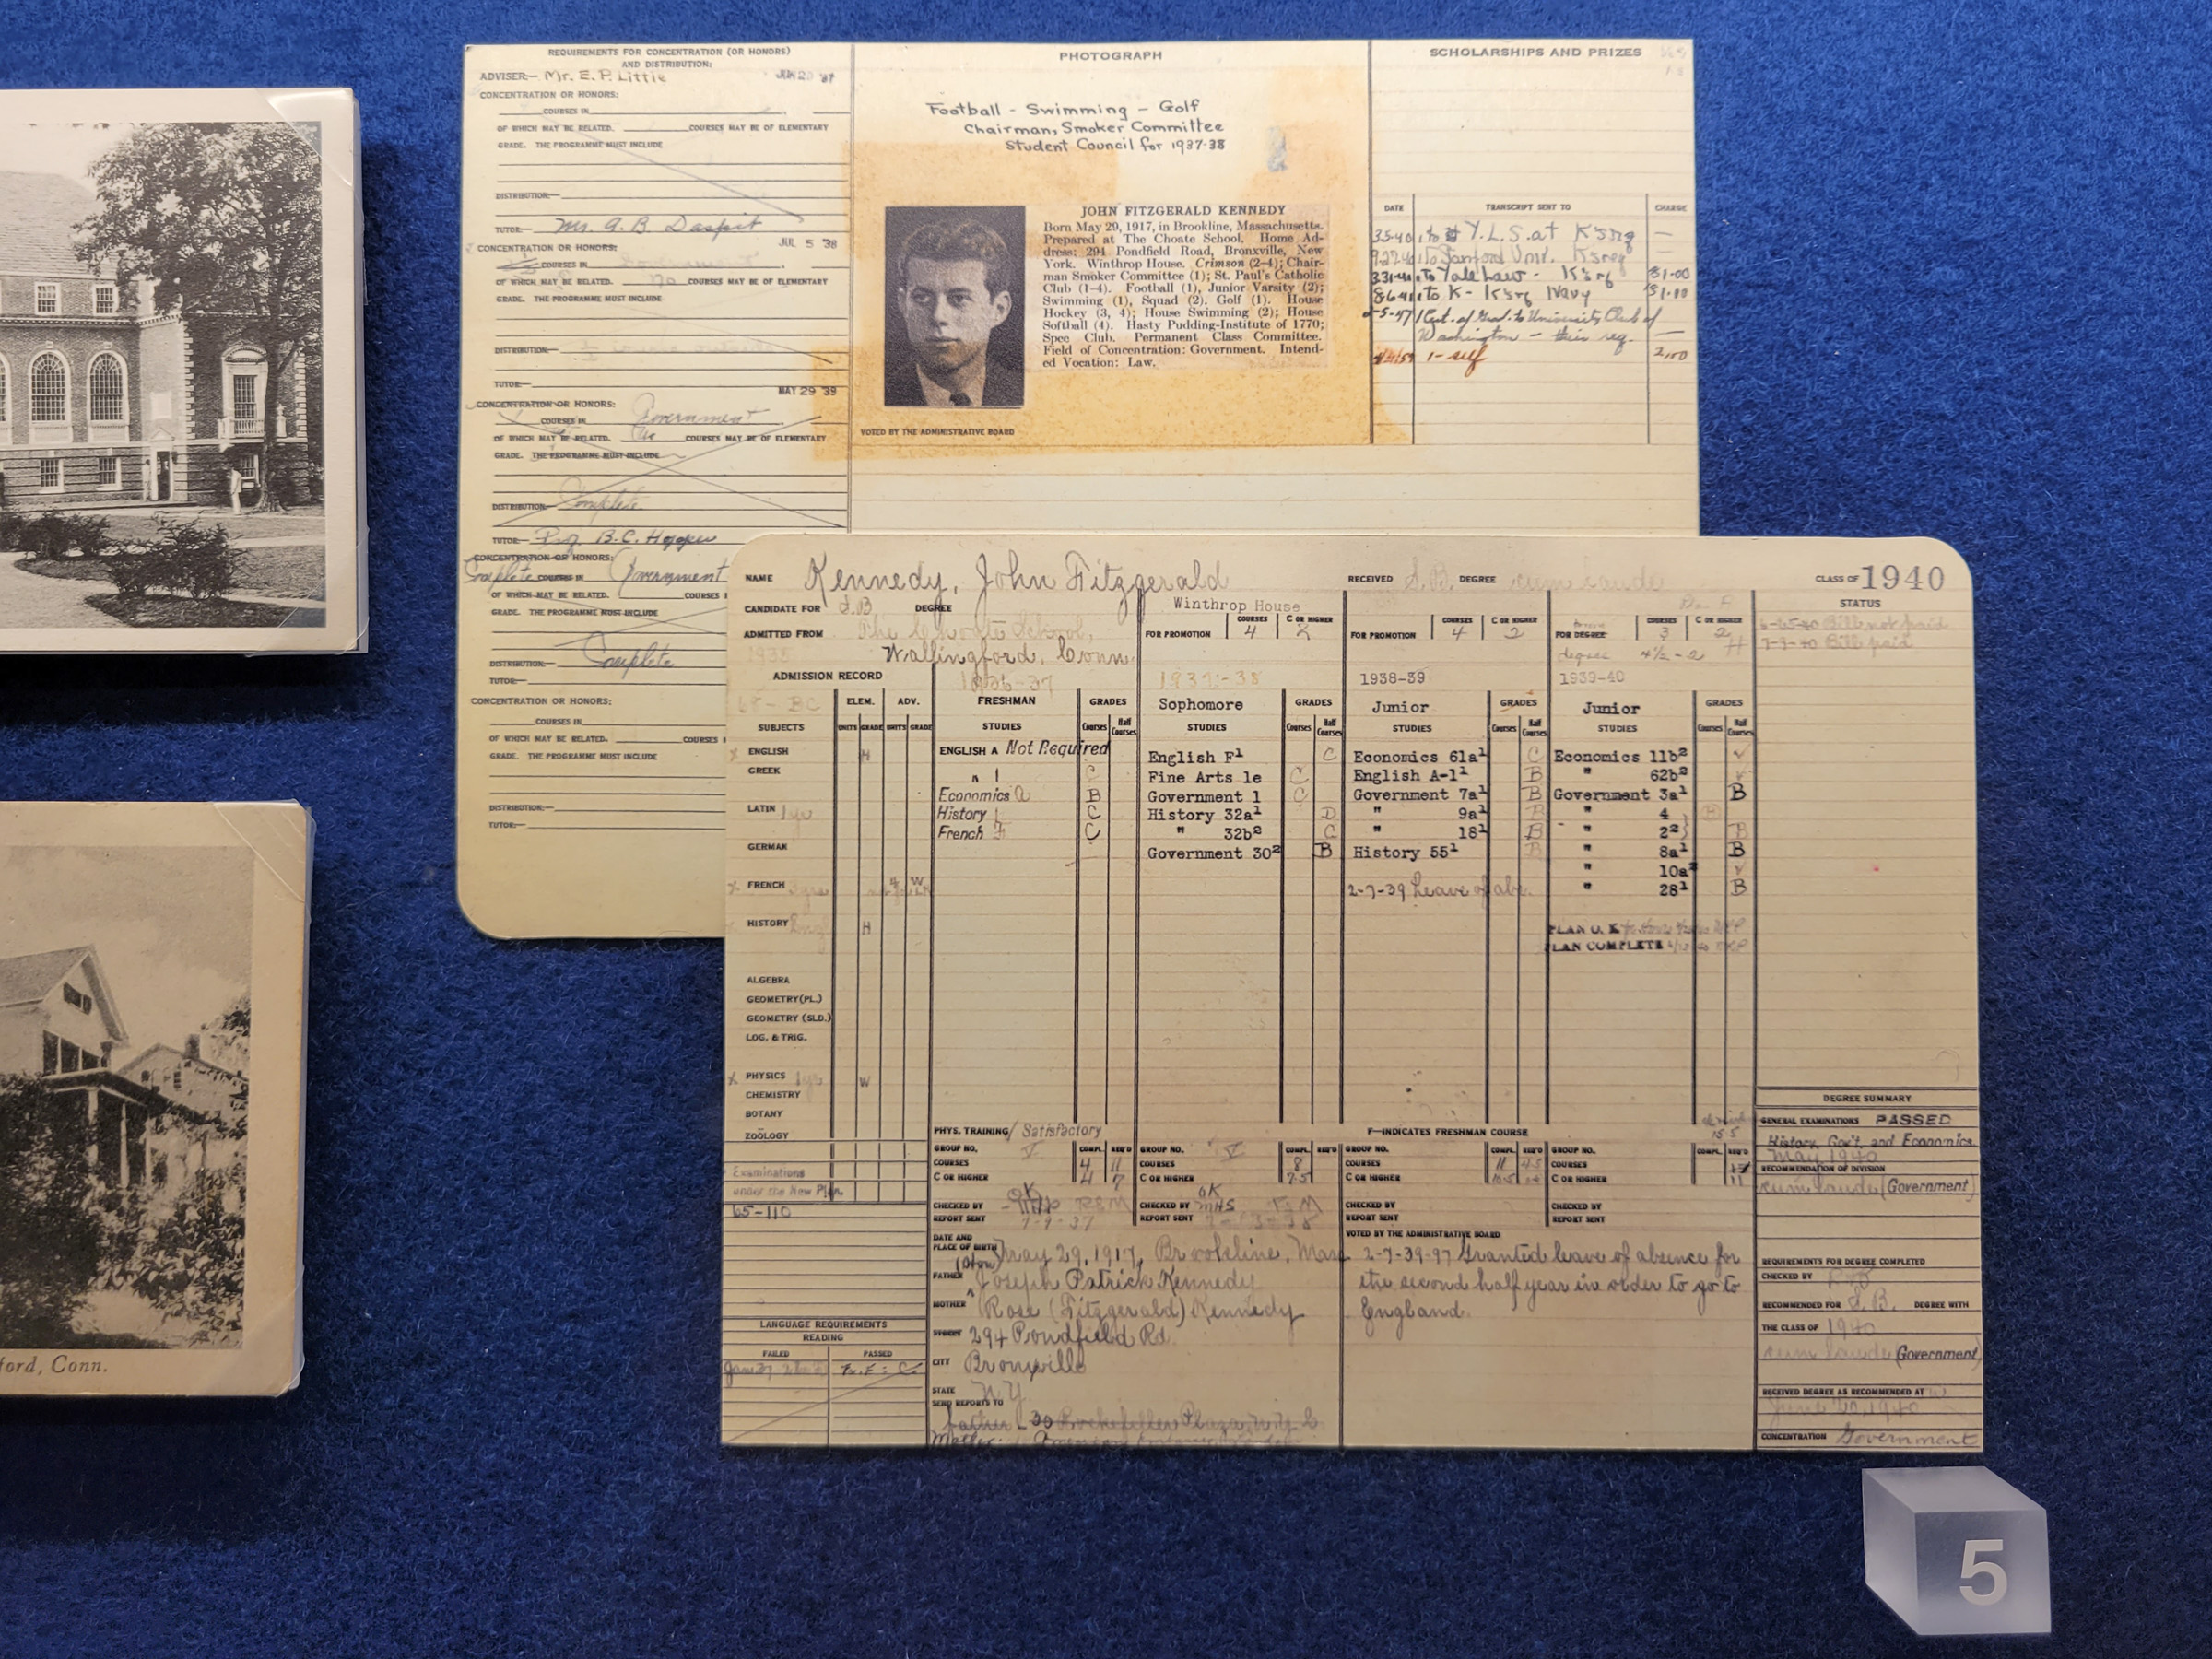 REQUIREMENTS FOR CONCENTRATION (OR HONORS)
AND DISTRIBUTION:
ADVISER:— Mr. E. P. Little
CONCENTRATION OR HONORS:
COURSES IN
OF WHICH MAY BE RELATED. COURSES MAY BE OF ELEMENTARY
GRADE. THE PROGRAMME MUST INCLUDE
DISTRIBUTION:—
TUTOR:— Mr. A. B. Daspit
CONCENTRATION OR HONORS: JUL 5 '38
COURSES IN Government
OF WHICH MAY BE RELATED. no COURSES MAY BE OF ELEMENTARY
GRADE. THE PROGRAMME MUST INCLUDE
DISTRIBUTION:—
TUTOR:—
MAY 29 '39
CONCENTRATION OR HONORS:
COURSES IN Government
OF WHICH MAY BE RELATED. COURSES MAY BE OF ELEMENTARY
GRADE. THE PROGRAMME MUST INCLUDE
DISTRIBUTION:— Complete
TUTOR:— Prof. B.C. Hopper
CONCENTRATION OR HONORS:
Complete COURSES IN Government
OF WHICH MAY BE RELATED. COURSES
GRADE. THE PROGRAMME MUST INCLUDE
DISTRIBUTION:— Complete
TUTOR:—
CONCENTRATION OR HONORS:
COURSES IN
OF WHICH MAY BE RELATED. COURSES
GRADE. THE PROGRAMME MUST INCLUDE
DISTRIBUTION:—
TUTOR:—
PHOTOGRAPH
Football - Swimming - Golf
Chairman, Smoker Committee
Student Council for 1937-38
JOHN FITZGERALD KENNEDY
Born May 29, 1917, in Brookline, Massachusetts.
Prepared at The Choate School. Home Ad-
dress: 294 Pondfield Road, Bronxville, New
York. Winthrop House. Crimson (2-4); Chair-
man Smoker Committee (1); St. Paul's Catholic
Club (1-4). Football (1), Junior Varsity (2);
Swimming (1), Squad (2). Golf (1). House
Hockey (3, 4); House Swimming (2); House
Softball (4). Hasty Pudding-Institute of 1770;
Spee Club. Permanent Class Committee.
Field of Concentration: Government. Intend-
ed Vocation: Law.
VOTED BY THE ADMINISTRATIVE BOARD
SCHOLARSHIPS AND PRIZES
DATE TRANSCRIPT SENT TO CHARGE
1 to Y.L.S. at K's rq —
1 to Stanford Univ. K's req —
1 to Yale Law - K's rq $1.00
8-6-41 1 to K - K's rq Navy $1.00
1 Cert. of Grad. to University Club of
Washington - their req. —
1 - self 2.00
NAME Kennedy, John Fitzgerald RECEIVED S.B. DEGREE cum laude CLASS OF 1940
CANDIDATE FOR S.B. DEGREE
ADMITTED FROM The Choate School,
1935 Wallingford, Conn.
Winthrop House
FOR PROMOTION COURSES 4 C OR HIGHER 2
FOR PROMOTION COURSES 4 C OR HIGHER 2
FOR DEGREE COURSES 3 C OR HIGHER 2
degree 4½-2
STATUS
Bill not paid
Bill paid
ADMISSION RECORD 1936-37 1937-38 1938-39 1939-40
ELEM. ADV.
SUBJECTS UNITS GRADE UNITS GRADE
ENGLISH H
GREEK
LATIN 1 yr
GERMAN
FRENCH 3 yrs
HISTORY H
ALGEBRA
GEOMETRY (PL.)
GEOMETRY (SLD.)
LOG. & TRIG.
PHYSICS 1 yr W
CHEMISTRY
BOTANY
ZOÖLOGY
Examinations
under the New Plan
65-110
LANGUAGE REQUIREMENTS
READING
FAILED PASSED
FRESHMAN GRADES
STUDIES Courses Half Courses
ENGLISH A Not Required
" 1 C
Economics A B
History 1 C
French F C
PHYS. TRAINING Satisfactory
GROUP NO. V COMPL. REQ'D
COURSES 4 11
C OR HIGHER 4 7
CHECKED BY
REPORT SENT 7-9-37
Sophomore GRADES
STUDIES Courses Half Courses
English F¹ C
Fine Arts 1e C
Government 1 C
History 32a¹ D
" 32b² C
Government 30² B
GROUP NO. V COMPL. REQ'D
COURSES 8
C OR HIGHER 7.5
CHECKED BY OK MHS
REPORT SENT
Junior GRADES
STUDIES Courses Half Courses
Economics 61a¹ C
English A-1¹ B
Government 7a¹ B
" 9a¹ B
" 18¹ B
History 55¹ B
2-7-39 Leave of abs.
F—INDICATES FRESHMAN COURSE
GROUP NO. COMPL. REQ'D
COURSES 11
C OR HIGHER 10.5
CHECKED BY
REPORT SENT
Junior GRADES
STUDIES Courses Half Courses
Economics 11b² ✓
" 62b² ✓
Government 3a¹ B
" 4 B
" 2² B
" 8a¹ B
" 10a² ✓
" 28¹ B
PLAN O. K.
PLAN COMPLETE
GROUP NO. COMPL. REQ'D
COURSES
C OR HIGHER 11
CHECKED BY
REPORT SENT
DATE AND
PLACE OF BIRTH May 29, 1917, Brookline, Mass
FATHER Joseph Patrick Kennedy
MOTHER Rose (Fitzgerald) Kennedy
STREET 294 Pondfield Rd.
CITY Bronxville
STATE N.Y.
SEND REPORTS TO
Father - 30 Rockefeller Plaza, N.Y.C.
Mother:
VOTED BY THE ADMINISTRATIVE BOARD
2-7-39-97 Granted leave of absence for
the second half year in order to go to
England.
DEGREE SUMMARY
GENERAL EXAMINATIONS PASSED
History, Gov't. and Economics
May 1940
RECOMMENDATION OF DIVISION
cum laude (Government)
REQUIREMENTS FOR DEGREE COMPLETED
CHECKED BY
RECOMMENDED FOR S.B. DEGREE WITH
THE CLASS OF 1940
cum laude (Government)
RECEIVED DEGREE AS RECOMMENDED AT
June 20, 1940
CONCENTRATION Government
ford, Conn.
5